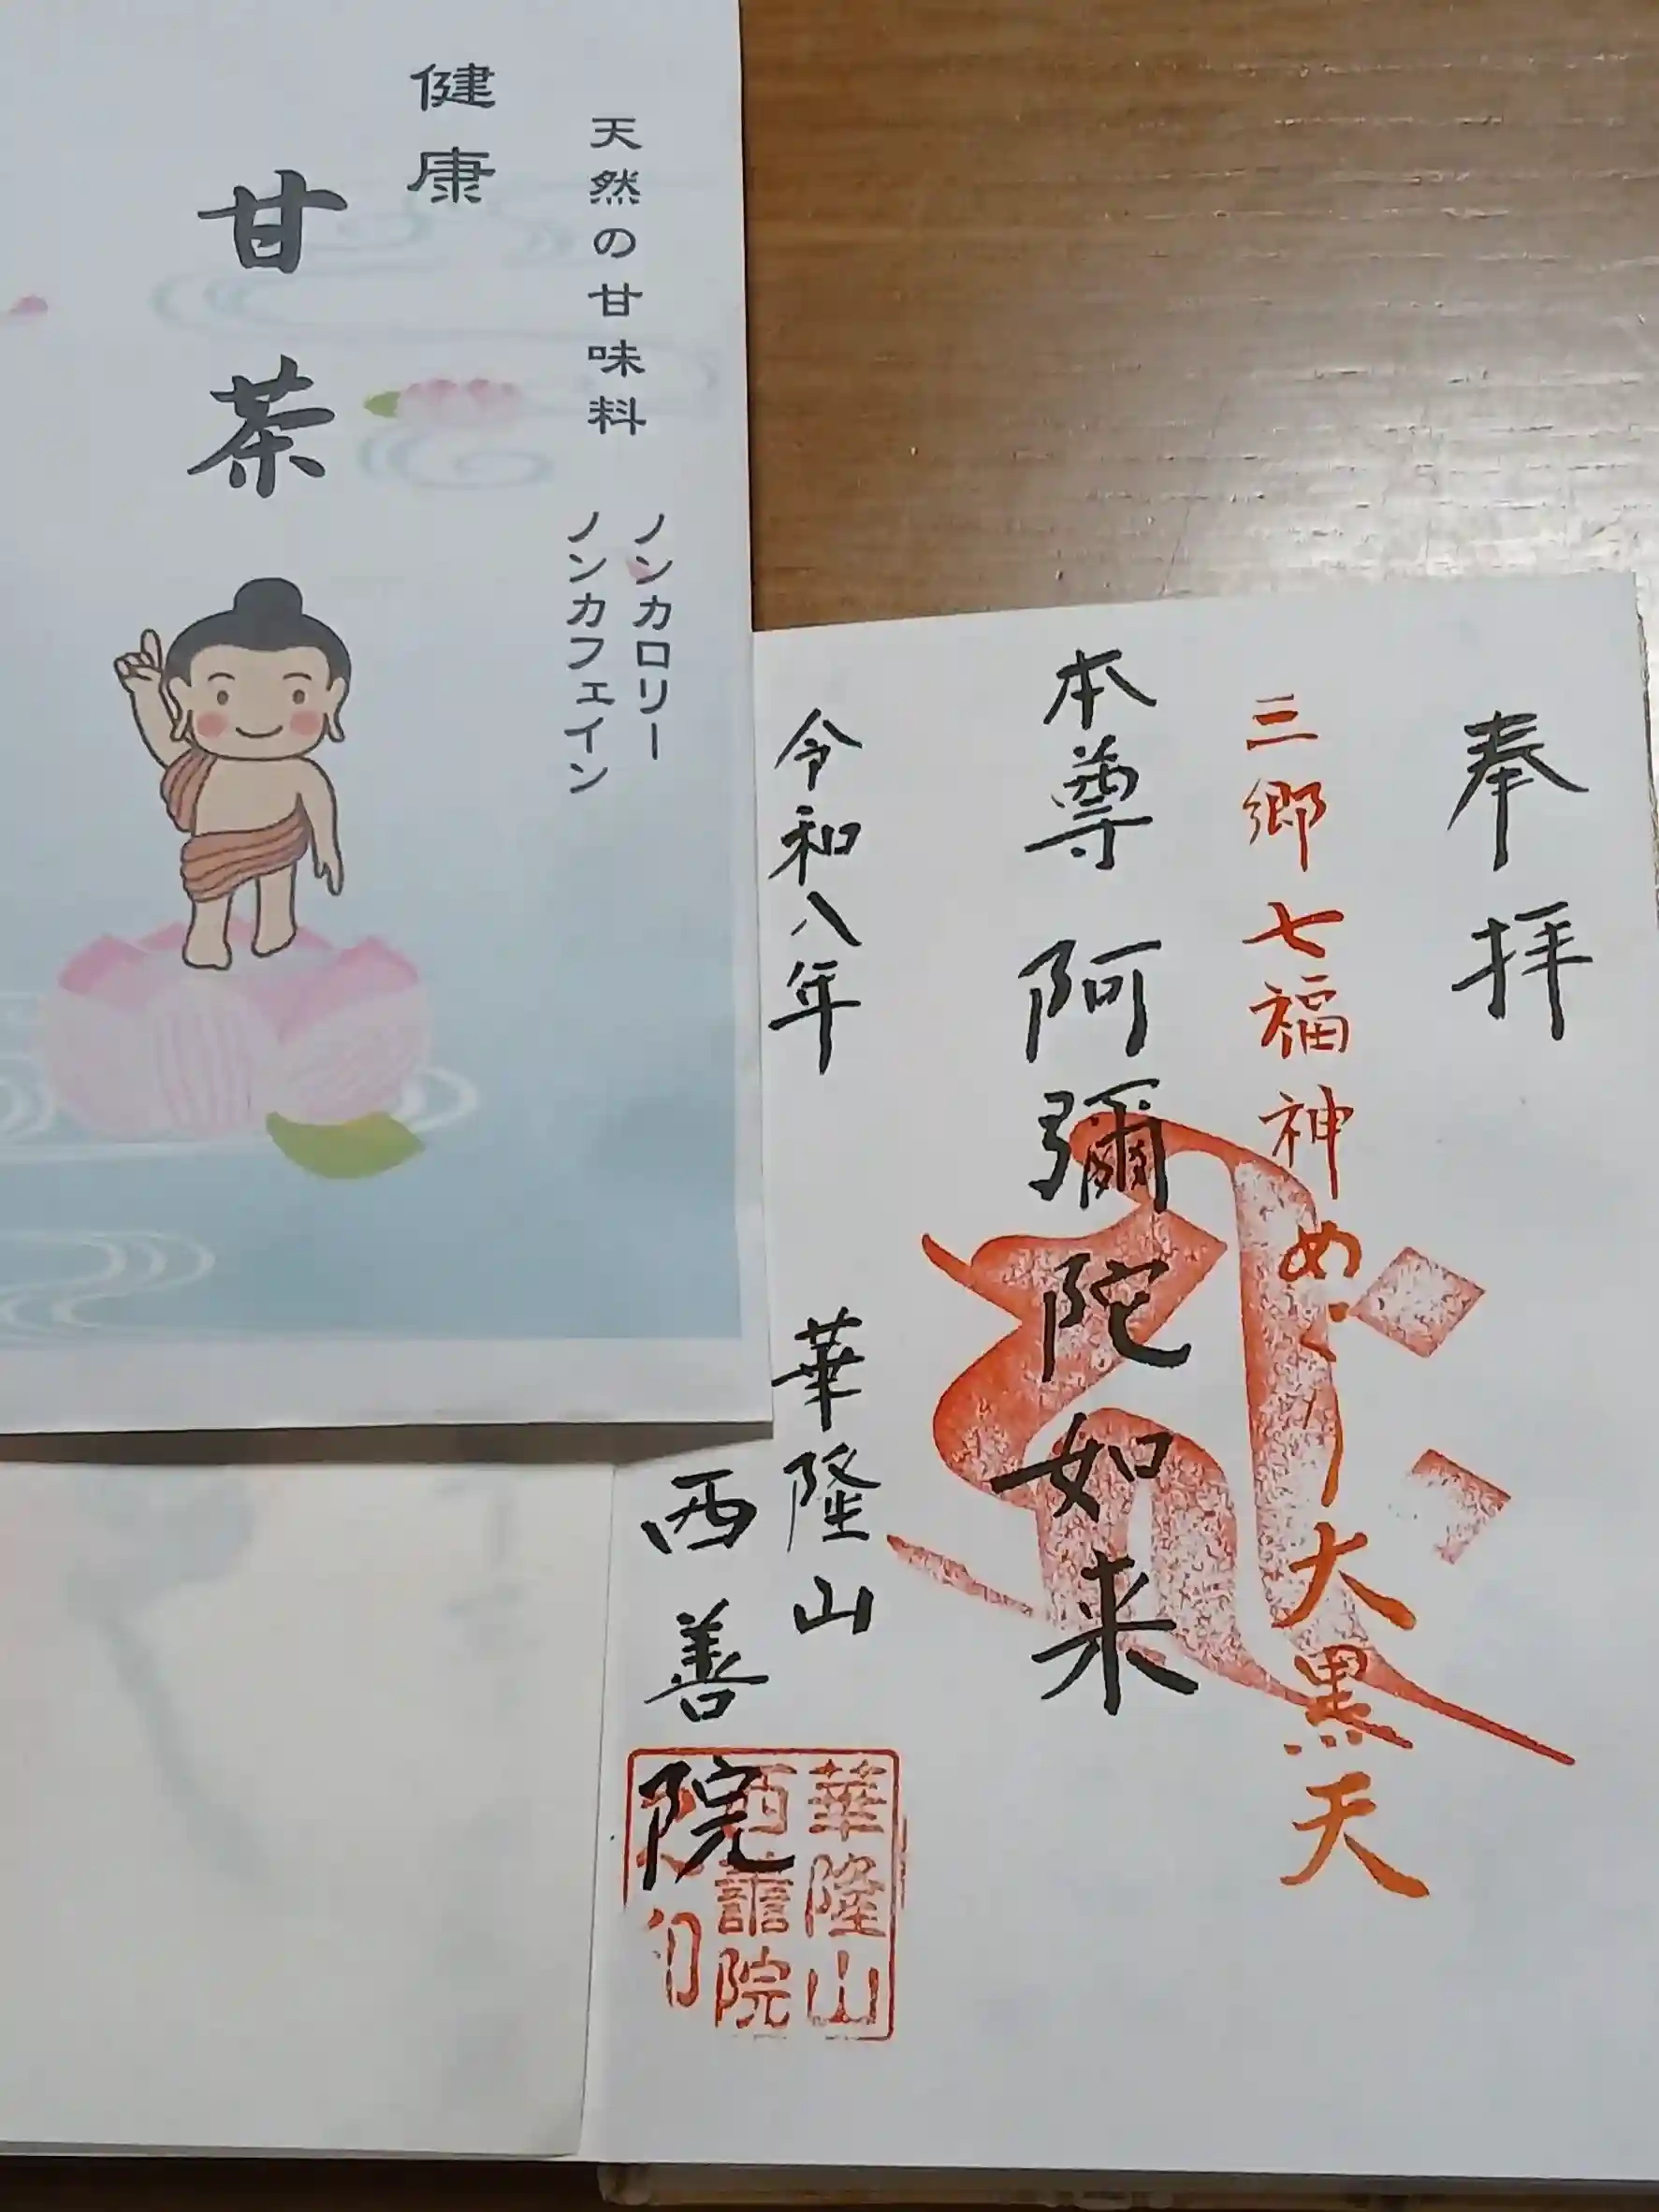 天然の甘味料
ノンカロリー
ノンカフェイン
健康
甘茶
奉拝
三郷七福神めぐり大黒天
本尊 阿彌陀如来
令和八年
華隆山
西善院
華隆山
西善院